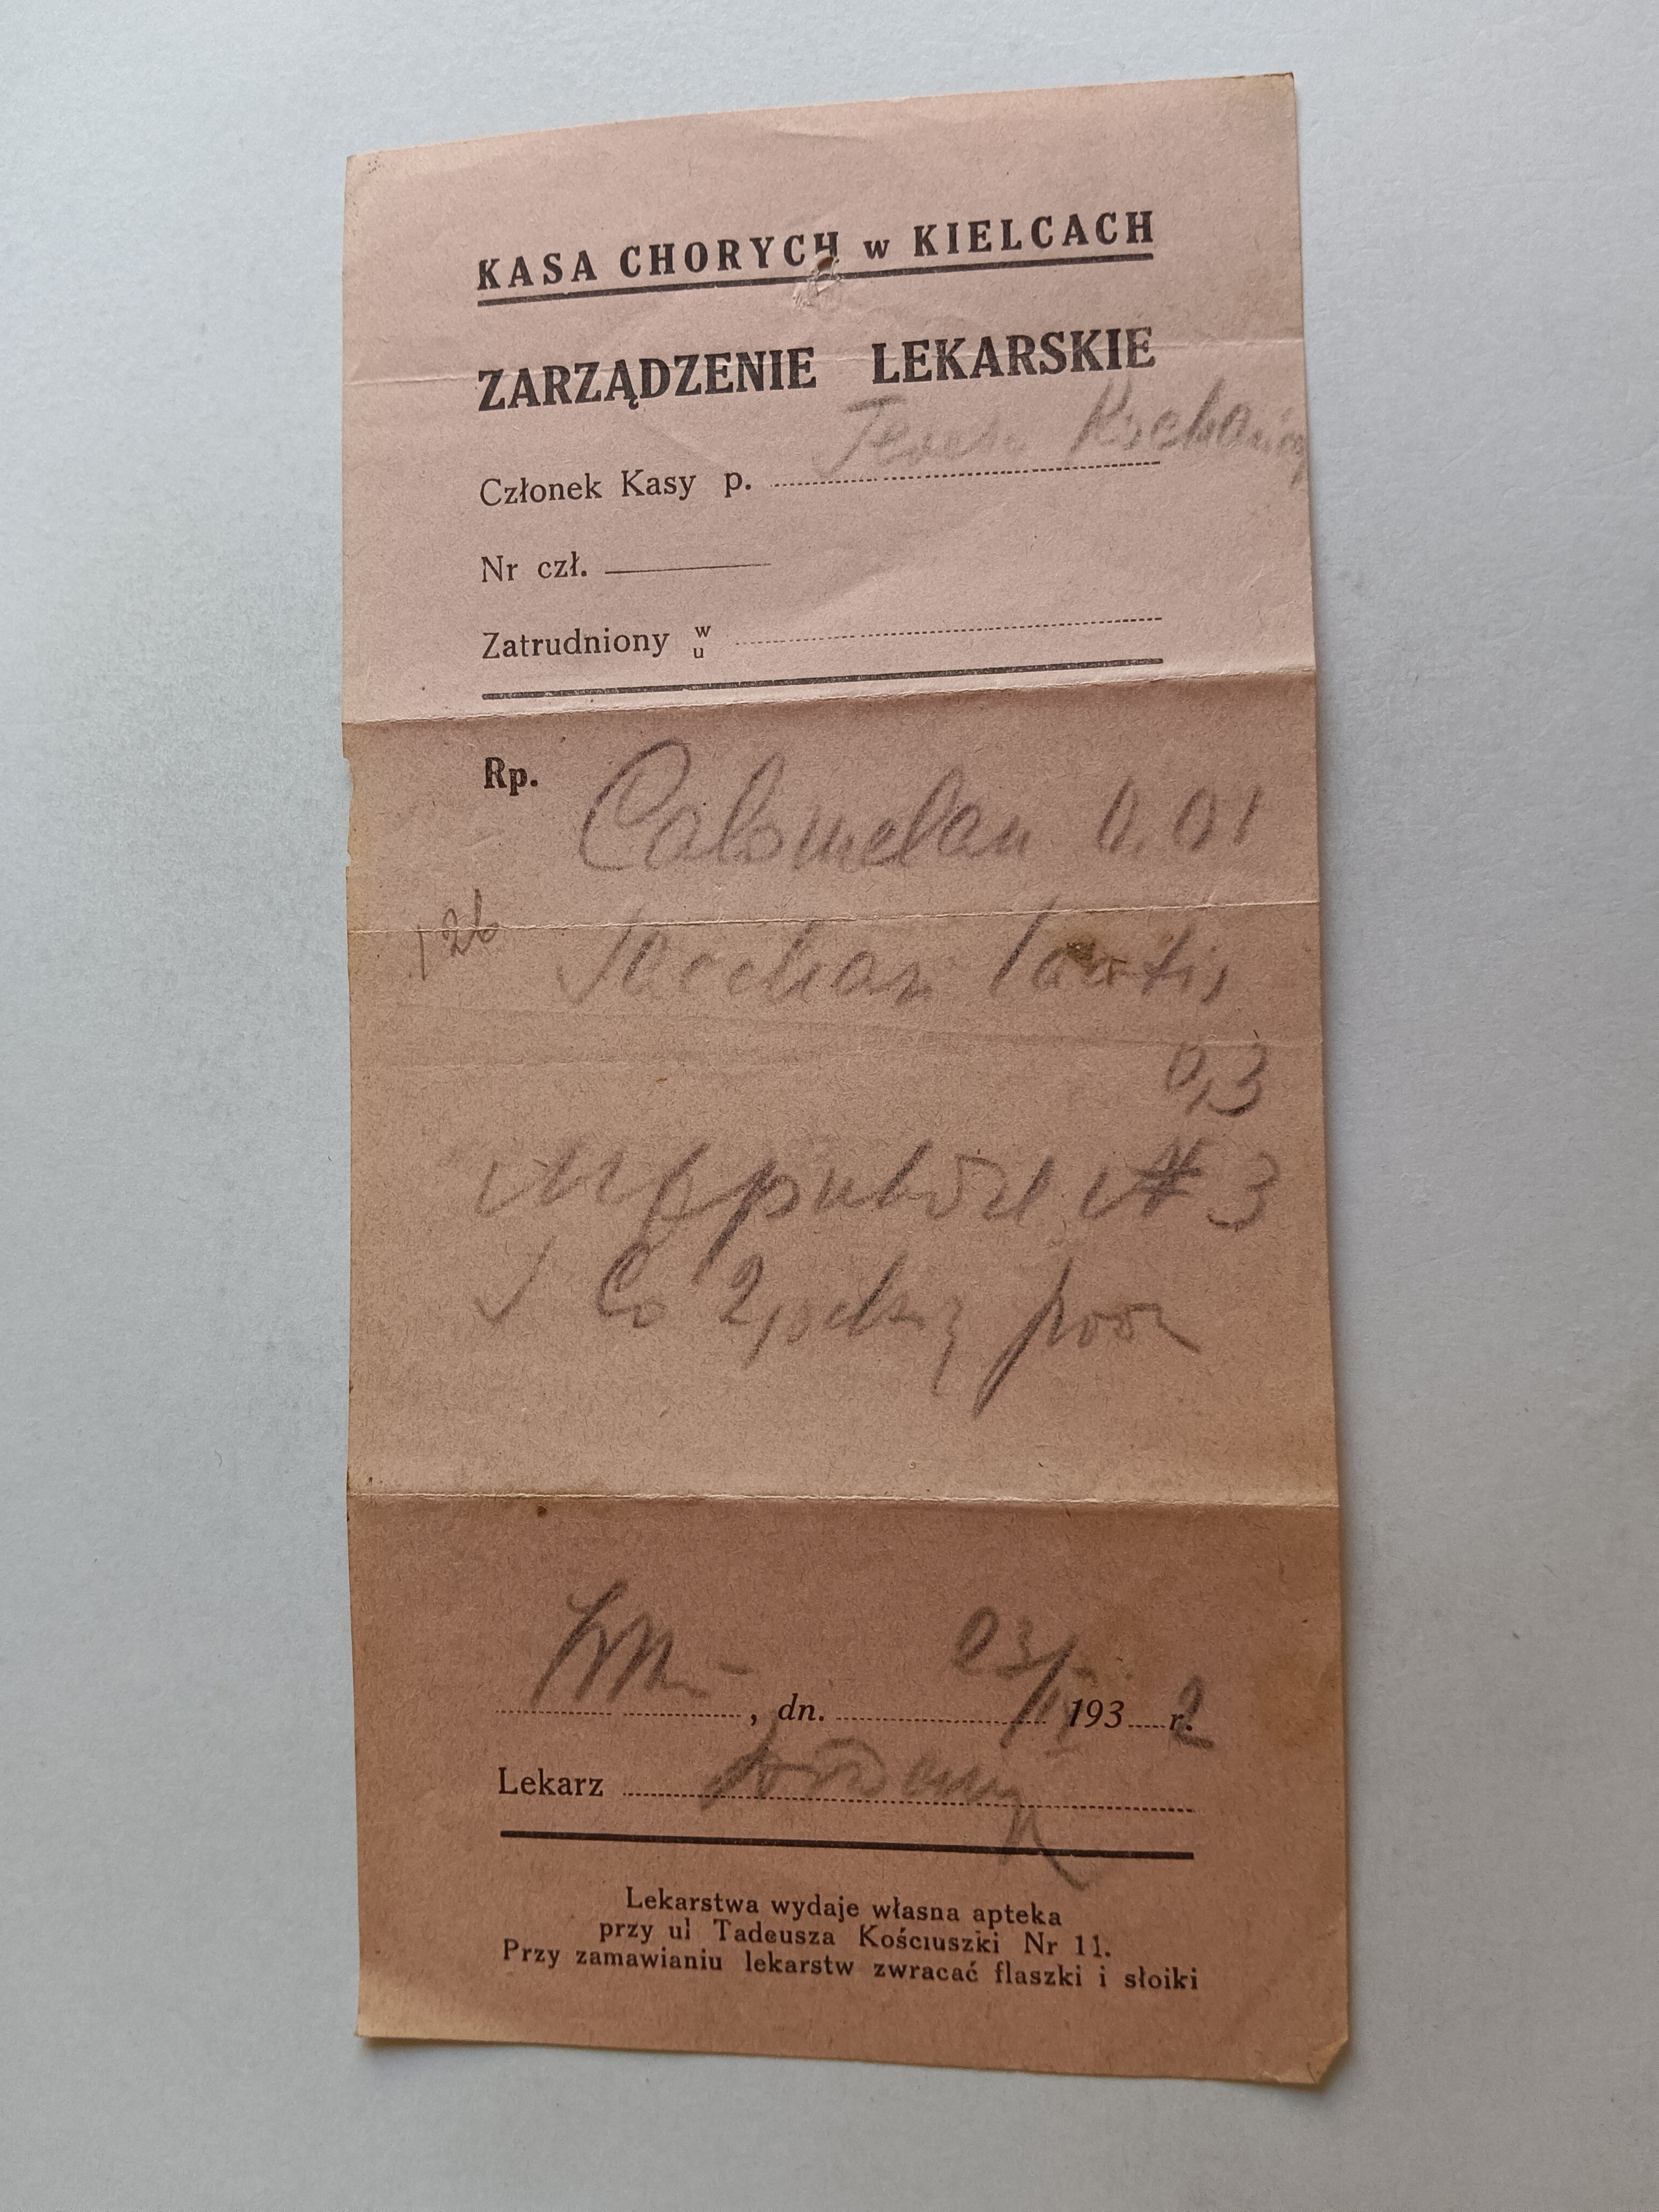 KASA CHORYCH w KIELCACH
ZARZĄDZENIE LEKARSKIE
Członek Kasy p. Teresa
Nr czł.
Zatrudniony w/u
Rp. Calomelan 0.01
126
Sacchar. lactis
0,3
№ 3
S Co 2
, dn. 23/IV 1932 r.
Lekarz
Lekarstwa wydaje własna apteka
przy ul Tadeusza Kościuszki Nr 11.
Przy zamawianiu lekarstw zwracać flaszki i słoiki